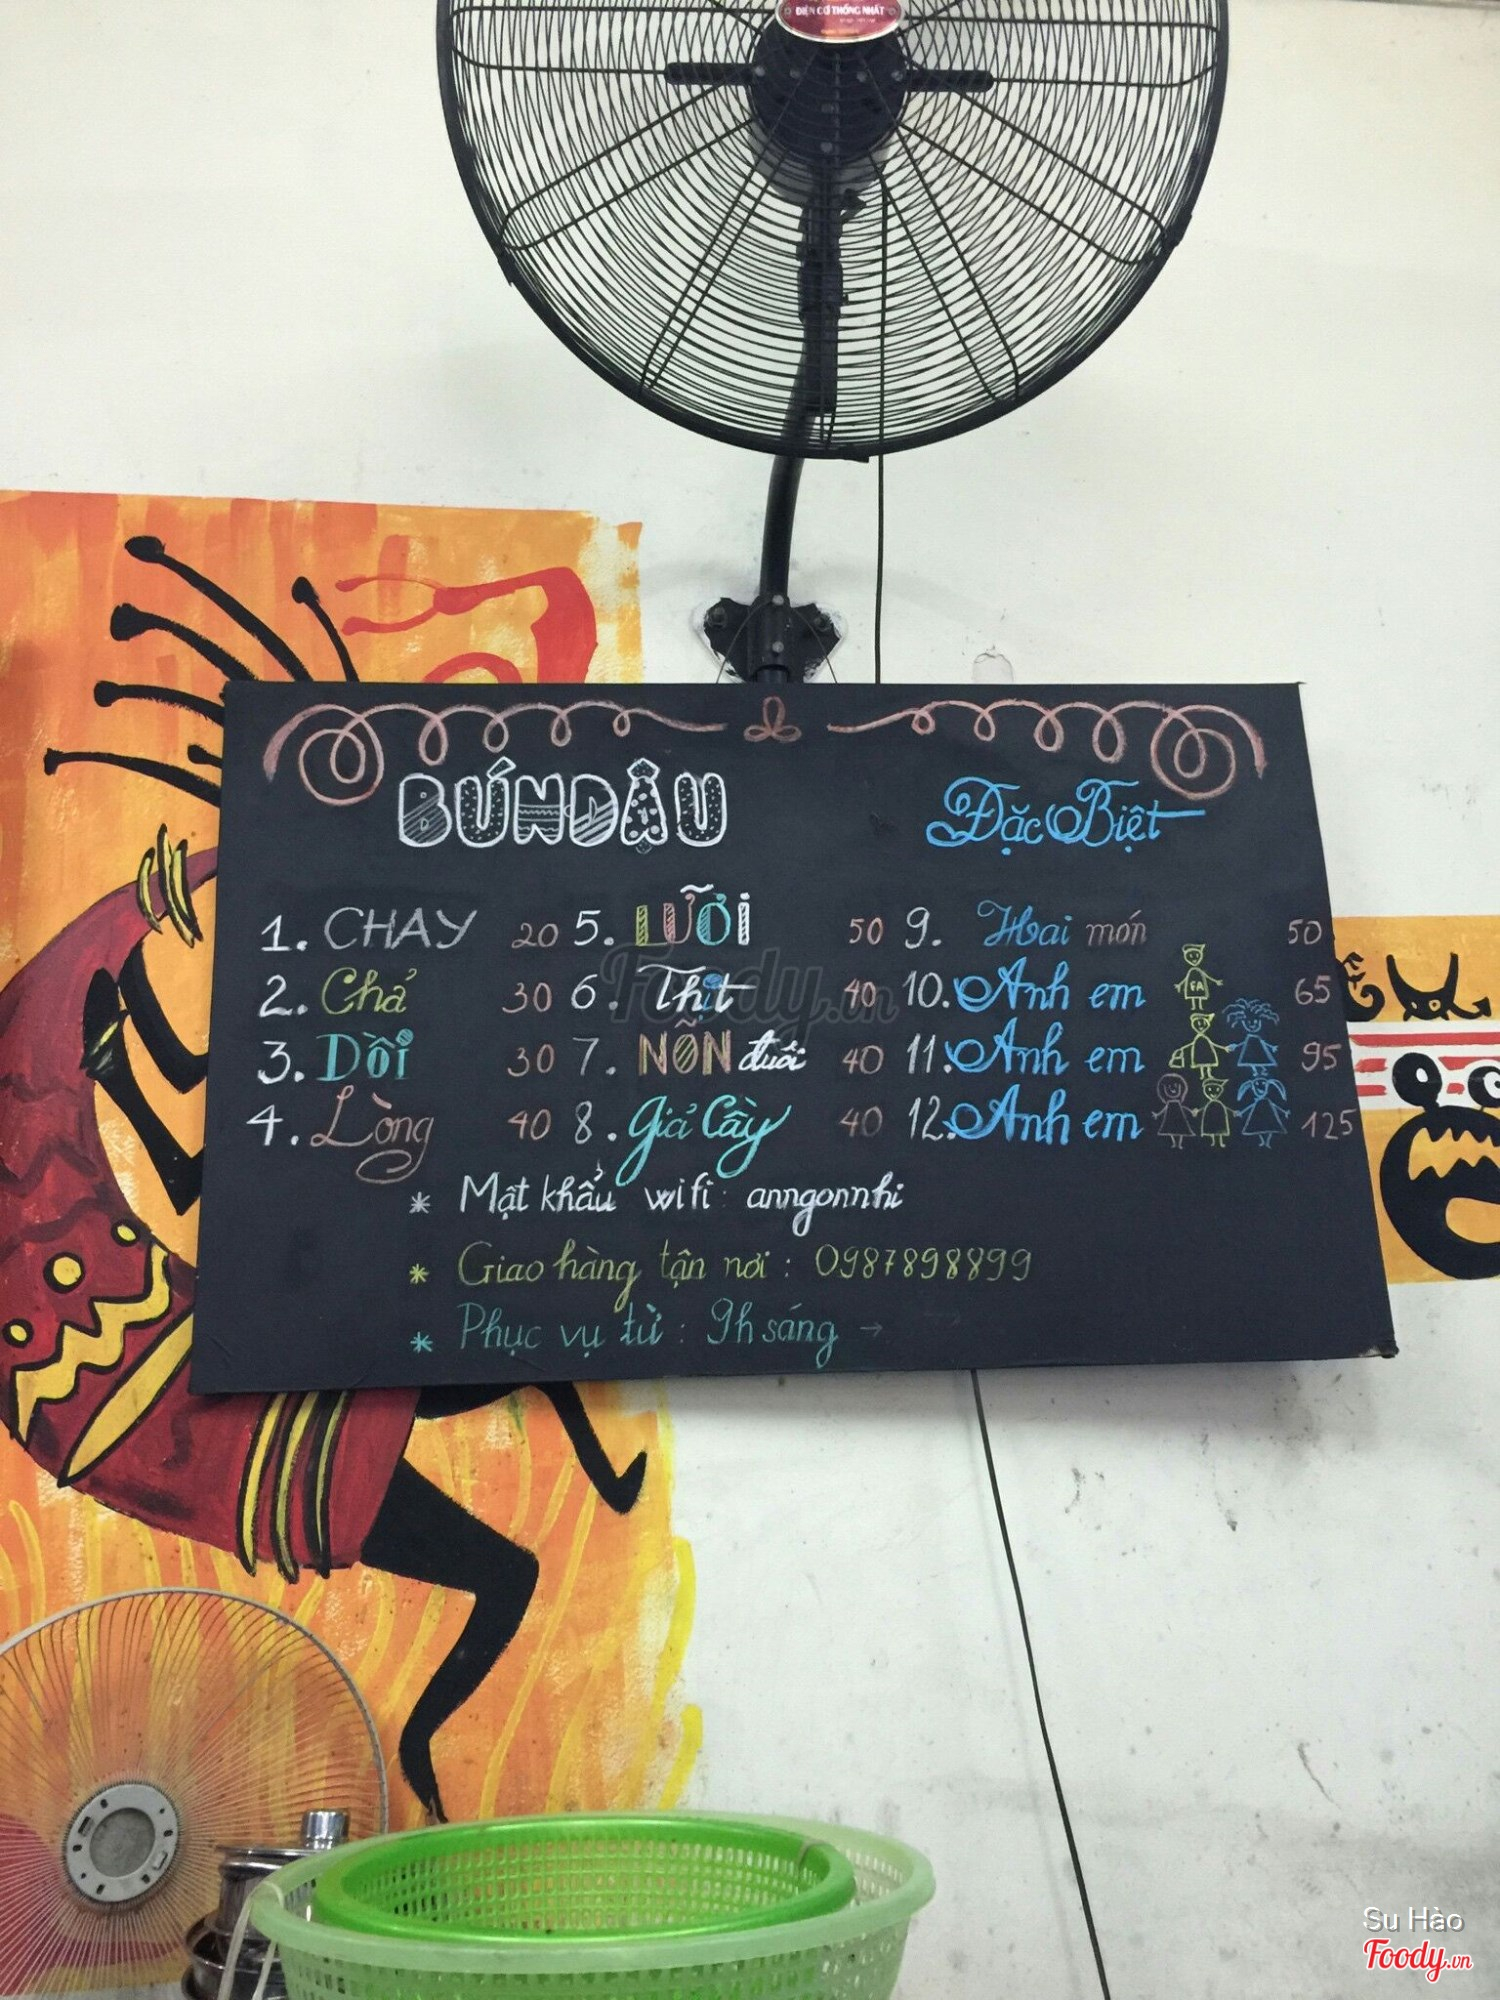 ĐIỆN CƠ THỐNG NHẤT
BÚN ĐẬU
Đặc Biệt
1. CHAY 20
2. Chả 30
3. Dồi 30
4. Lòng 40
5. LƯỠI 50
6. Thịt 40
7. NÕN đuôi 40
8. Giả Cầy 40
9. Hai món 50
10. Anh em FA 65
11. Anh em 95
12. Anh em 125
* Mật khẩu wifi: anngonnhi
* Giao hàng tận nơi: 0987898899
* Phục vụ từ: 9h sáng →
Foody.vn
Su Hào
Foody.vn